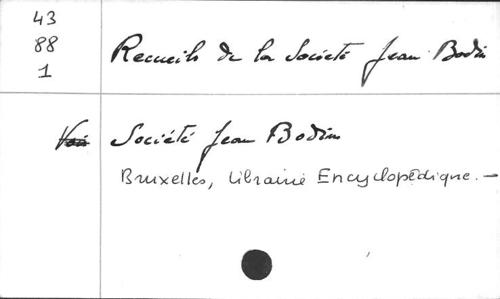 43
88
1
Recueils de la Société Jean Bodin
Voir Société Jean Bodin
Bruxelles, Librairie Encyclopédique. -